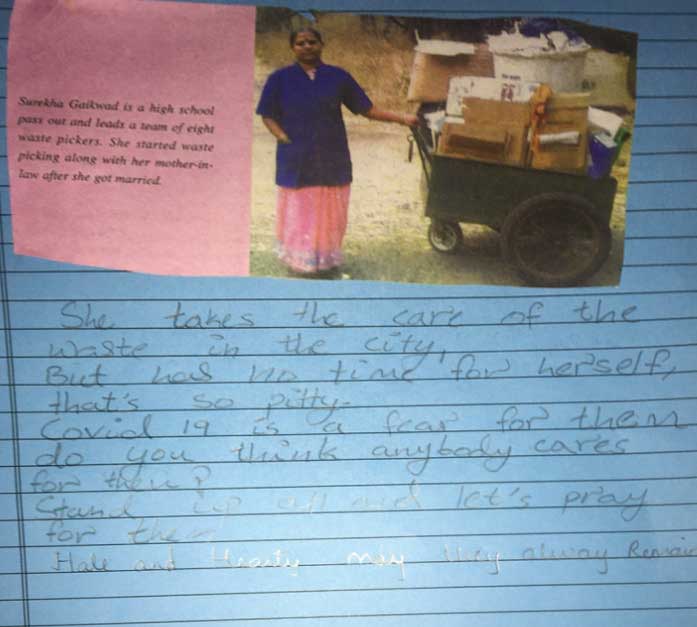 Surekha Gaikwad is a high school
pass out and leads a team of eight
waste pickers. She started waste
picking along with her mother-in-
law after she got married.
She takes the care of the
waste in the city,
But has no time for herself,
that's so pitty.
Covid 19 is a fear for them
do you think anybody cares
for them?
Stand up all and let's pray
for them
Hale and Hearty may they alway Remain